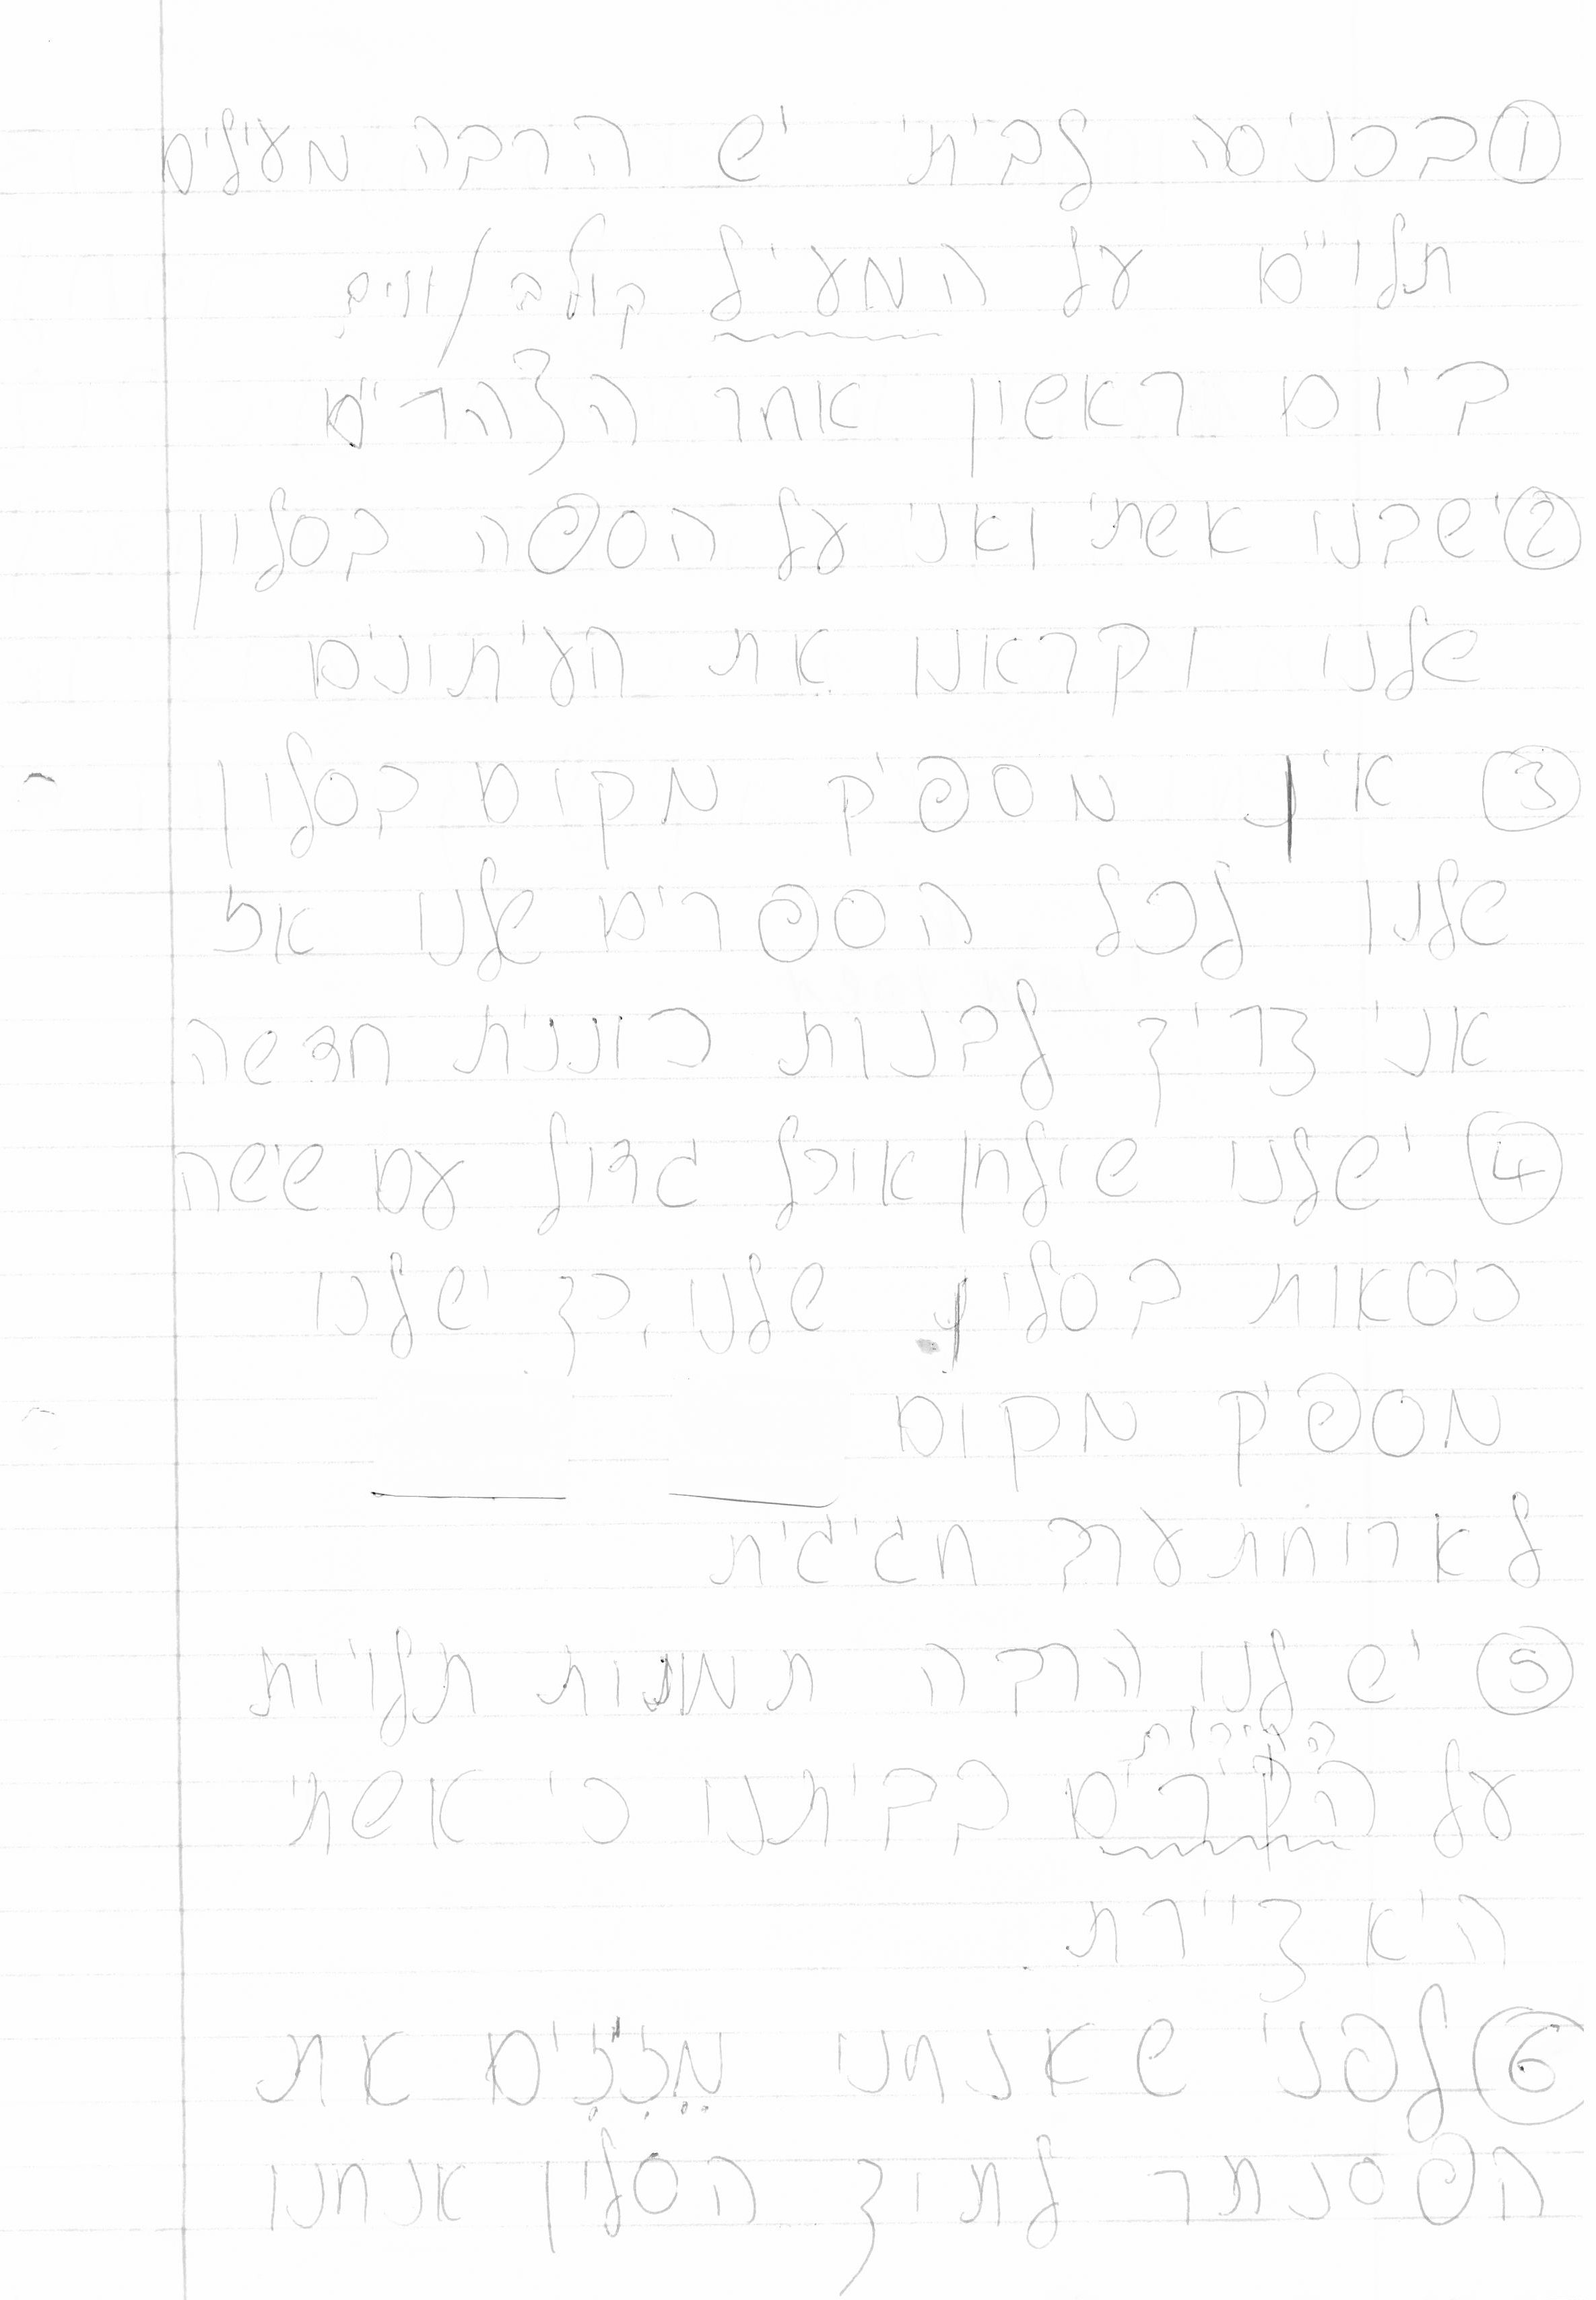 ① בכניסה לביתי יש הרבה מעילים
תלויים על המעיל קולב/ווים
ביום ראשון אחר הצהריים
② ישבנו אשתי ואני על הספה בסלון
שלנו וקראנו את העיתונים
③ אין מספיק מקום בסלון
שלנו לכל הספרים שלנו אז
אני צריך לבנות כוננית חדשה
④ ישלנו שולחן אוכל גדול עם ששה
כיסאות בסלון שלנו, כך ישלנו
מספיק מקום
לארוחת ערב חגיגית
⑤ יש לנו הרבה תמונות תלויות
הקירות
על הקירים בביתנו כי אשתי
היא ציירת.
⑥ לפני שאנחנו מזיזים את
הפסנתר לתוך הסלון אנחנו